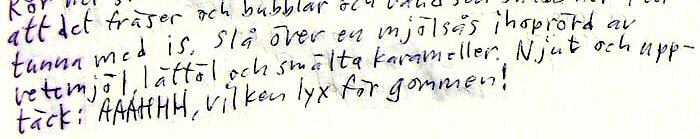 att det fräser och bubblar och
tunna med is. Slå över en mjölsås ihoprörd av
vetemjöl, lättöl och smälta karameller. Njut och upp-
täck: AAAHHH, vilken lyx för gommen!